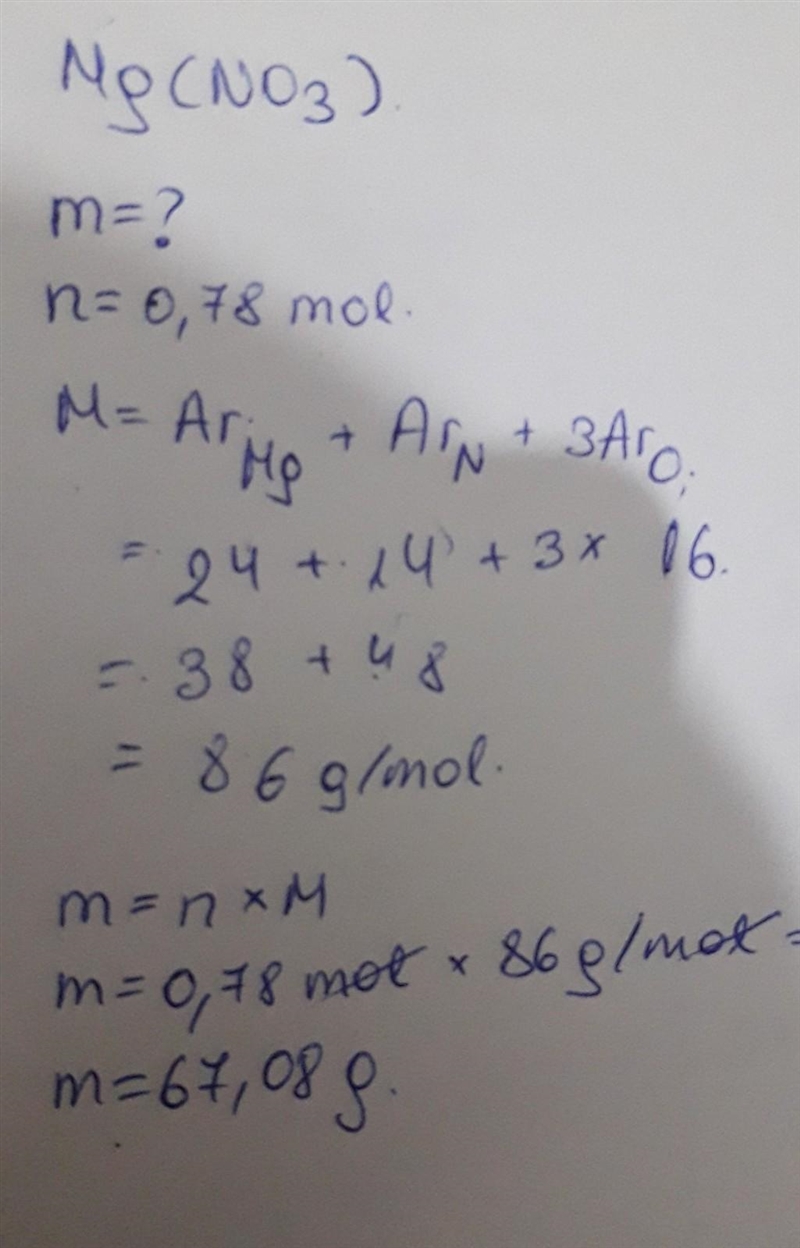 Mg(NO3).
m=?
n=0,78 mol.
M= ArMg + ArN + 3ArO;
= 24 + 14 + 3x 16.
= 38 + 48
= 86 g/mol.
m = n x M
m = 0,78 mol x 86 g/mol =
m = 67,08 g.